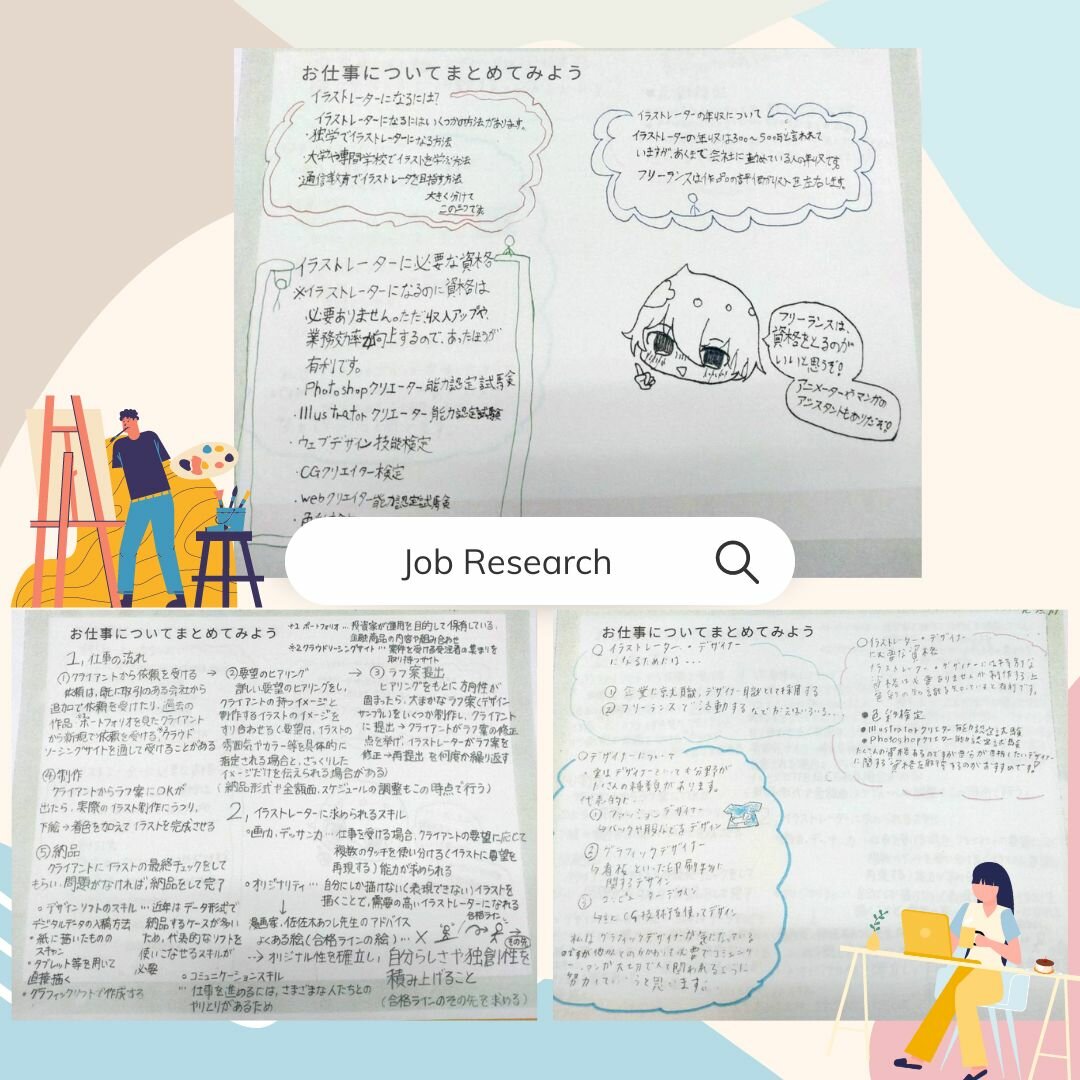 お仕事についてまとめてみよう
イラストレーターになるには?
イラストレーターになるにはいくつかの方法があります。
・独学でイラストレーターになる方法
・大学や専門学校でイラストを学ぶ方法
・通信教育でイラストレータを目指す方法
大きく分けて
この3つです。
イラストレーターの年収について
イラストレーターの年収は300〜500万と言われて
いますが、あくまで会社に勤めている人の年収です。
フリーランスは作品の評価が収入を左右します。
イラストレーターに必要な資格
※イラストレーターになるのに資格は
必要ありません。ただ、収入アップや、
業務効率が向上するので、あったほうが
有利です。
・Photoshopクリエーター能力認定試験
・Illustratorクリエーター能力認定試験
・ウェブデザイン技能検定
・CGクリエイター検定
・webクリエイター能力認定試験
フリーランスは、
資格をとるのが
いいと思うぞ!
アニメーターやマンガの
アシスタントもありだぞ!
Job Research
お仕事についてまとめてみよう
※1 ポートフォリオ…投資家が運用を目的して保有している、
金融商品の内容や組み合わせ
※2 クラウドソーシングサイト…案件を受ける受注者の集まりを
取り持つサイト
1, 仕事の流れ
①クライアントから依頼を受ける →
依頼は、既に取引のある会社から
追加で依頼を受けたり、過去の
作品・ポートフォリオを見たクライアント
から新規で依頼を受ける、クラウド
ソーシングサイトを通して受けることがある
②要望のヒアリング →
詳しい要望のヒアリングをし、
クライアントの持つイメージと
制作するイラストのイメージを
すり合わせる(要望は、イラストの
雰囲気やカラー等を具体的に
指定される場合と、ざっくりした
イメージだけを伝えられる場合がある)
(納品形式や金額面、スケジュールの調整もこの時点で行う)
③ラフ案提出
ヒアリングをもとに方向性が
固まったら、大まかなラフ案(デザイン
サンプル)をいくつか制作し、クライアント
に提出→クライアントがラフ案の修正
点を挙げ、イラストレーターがラフ案を
修正→再提出を何度か繰り返す
④制作
クライアントからラフ案にOKが
出たら、実際のイラスト制作にうつり、
下絵→着色を加えてイラストを完成させる
⑤納品
クライアントにイラストの最終チェックをして
もらい、問題がなければ納品をして完了
2, イラストレーターに求められるスキル
○画力、デッサン力…仕事を受ける場合、クライアントの要望に応じて
複数のタッチを使い分ける(イラストに要望を
再現する)能力が求められる
○オリジナリティ…自分にしか描けない(表現できない)イラストを
描くことで、需要の高いイラストレーターになれる
↓
漫画家、佐佐木あつし先生のアドバイス
よくある絵(合格ラインの絵)…×
合格ライン
その先
--→オリジナル性を確立し、自分らしさや独創性を
積み上げること
(合格ラインのその先を求める)
○デザインソフトのスキル…近年はデータ形式で
納品するケースが多い
ため、代表的なソフトを
使いこなせるスキルが
必要
デジタルデータの入稿方法
・紙に描いたものの
スキャン
・タブレット等を用いて
直接描く
・グラフィックソフトで作成する
○コミュニケーションスキル
…仕事を進めるには、さまざまな人たちとの
やりとりがあるため
お仕事についてまとめてみよう
○イラストレーター・デザイナー
になるためには…
①企業に宣伝職、デザイナー職として採用する
②フリーランスで活動する
○イラストレーター・デザイナー
に必要な資格
イラストレーター・デザイナーには特別な
資格は必要ありませんが制作する上
●色彩検定
●Illustratorクリエーター能力認定試験
●Photoshopクリエーター能力認定試験
○デザイナーについて
実はデザイナーといっても分野が
たくさんの種類があります。
①ファッションデザイナー
②グラフィックデザイナー
関するデザイン
私はグラフィックデザイナーが気になっている